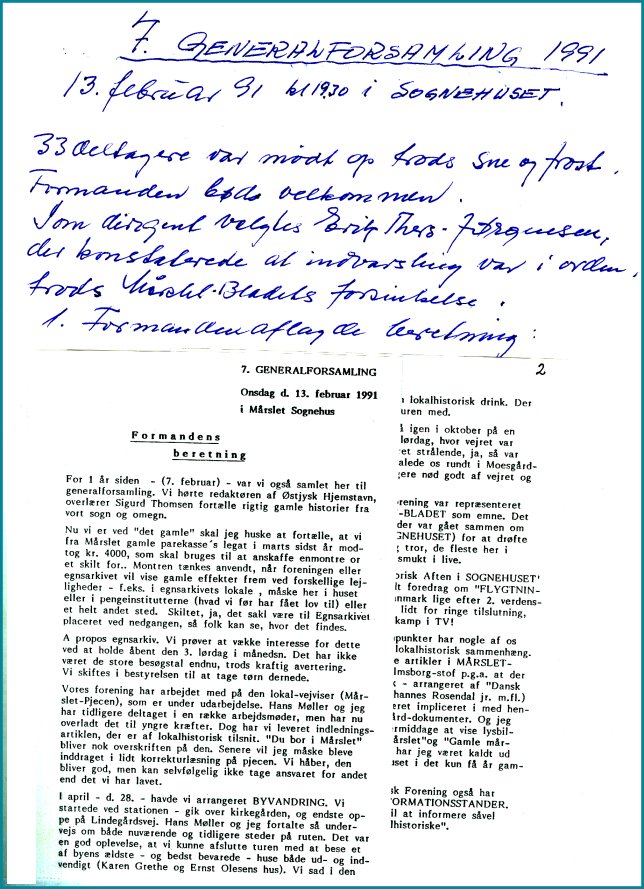 7. GENERALFORSAMLING 1991
13. februar 91 kl 1930 i SOGNEHUSET.
33 deltagere var mødt op trods sne og frost.
Formanden bød velkommen.
Som dirigent valgtes Erik Thers-Jørgensen,
der konstaterede at indvarsling var i orden,
trods Mårslet-Bladets forsinkelse.
1. Formanden aflagde beretning:
7. GENERALFORSAMLING
Onsdag d. 13. februar 1991
i Mårslet Sognehus
Formandens
beretning
For 1 år siden - (7. februar) - var vi også samlet her til
generalforsamling. Vi hørte redaktøren af Østjysk Hjemstavn,
overlærer Sigurd Thomsen fortælle rigtig gamle historier fra
vort sogn og omegn.
Nu vi er ved "det gamle" skal jeg huske at fortælle, at vi
fra Mårslet gamle parekasse´s legat i marts sidst år mod-
tog kr. 4000, som skal bruges til at anskaffe enmontre or
et skilt for.. Montren tænkes anvendt, når foreningen eller
egnsarkivet vil vise gamle effekter frem ved forskellige lej-
ligheder - f.eks. i egnsarkivets lokale , måske her i huset
eller i pengeinstitutterne (hvad vi før har fået lov til) eller
et helt andet sted. Skiltet, ja, det sakl være til Egnsarkivet
placeret ved nedgangen, så folk kan se, hvor det findes.
A propos egnsarkiv. Vi prøver at vække interesse for dette
ved at holde åbent den 3. lørdag i månedsn. Det har ikke
været de store besøgstal endnu, trods kraftig avertering.
Vi skiftes i bestyrelsen til at tage tørn dernede.
Vores forening har arbejdet med på den lokal-vejviser (Mår-
slet-Pjecen), som er under udarbejdelse. Hans Møller og jeg
har tidligere deltaget i en række arbejdsmøder, men har nu
overladt det til yngre kræfter. Dog har vi leveret indlednings-
artiklen, der er af lokalhistorisk tilsnit. "Du bor i Mårslet"
bliver nok overskriften på den. Senere vil jeg måske blive
inddraget i lidt korrekturlæsning på pjecen. Vi håber, den
bliver god, men kan selvfølgelig ikke tage ansvaret for andet
end det vi har lavet.
I april - d. 28. - havde vi arrangeret BYVANDRING. Vi
startede ved stationen - gik over kirkegården, og endste op-
pe på Lindegårdsvej. Hans Møller og jeg fortalte så under-
vejs om både nuværende og tidligere steder på ruten. Det var
en god oplevelse, at vi kunne afslutte turen med at bese et
af byens ældste - og bedst bevarede - huse både ud- og ind-
vendigt (Karen Grethe og Ernst Olesens hus). Vi sad i den
2
n lokalhistorisk drink. Der
uren med.
å igen i oktober på en
lørdag, hvor vejret var
ret strålende, ja, så var
alede os rundt i Moesgård-
gere nød godt af vejret og
orening var repræsenteret
-BLADET som emne. Det
der var gået sammen om
GNEHUSET) for at drøfte
g tror, de fleste her i
smukt i live.
orisk Aften i SOGNEHUSET'
lt foredrag om "FLYGTNIN-
nmark lige efter 2. verdens-
lidt for ringe tilslutning,
kamp i TV!
punkter har nogle af os
lokalhistorisk sammenhæng.
e artikler i MÅRSLET-
lmsborg-stof p.g.a. at der
k - arrangeret af "Dansk
hannes Rosendal jr. m.fl.)
eret impliceret i med hen-
ård-dokumenter. Og jeg
ermiddage at vise lysbil-
årslet"og "Gamle mår-
har jeg været kaldt ud
uset i det kun få år gam-
sk Forening også har
FORMATIONSSTANDER.
il at informere såvel
lhistoriske".